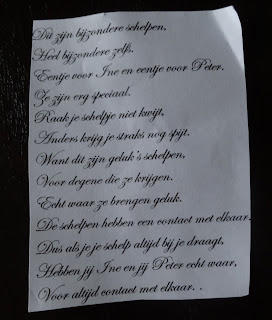 Dit zijn bijzondere schelpen,
Heel bijzondere zelfs.
Eentje voor Ine en eentje voor Peter.
Ze zijn erg speciaal.
Raak je schelpje niet kwijt,
Anders krijg je straks nog spijt.
Want dit zijn geluk's schelpen,
Voor degene die ze krijgen.
Echt waar ze brengen geluk.
De schelpen hebben een contact met elkaar.
Dus als je je schelp altijd bij je draagt,
Hebben jij Ine en jij Peter echt waar,
Voor altijd contact met elkaar. .